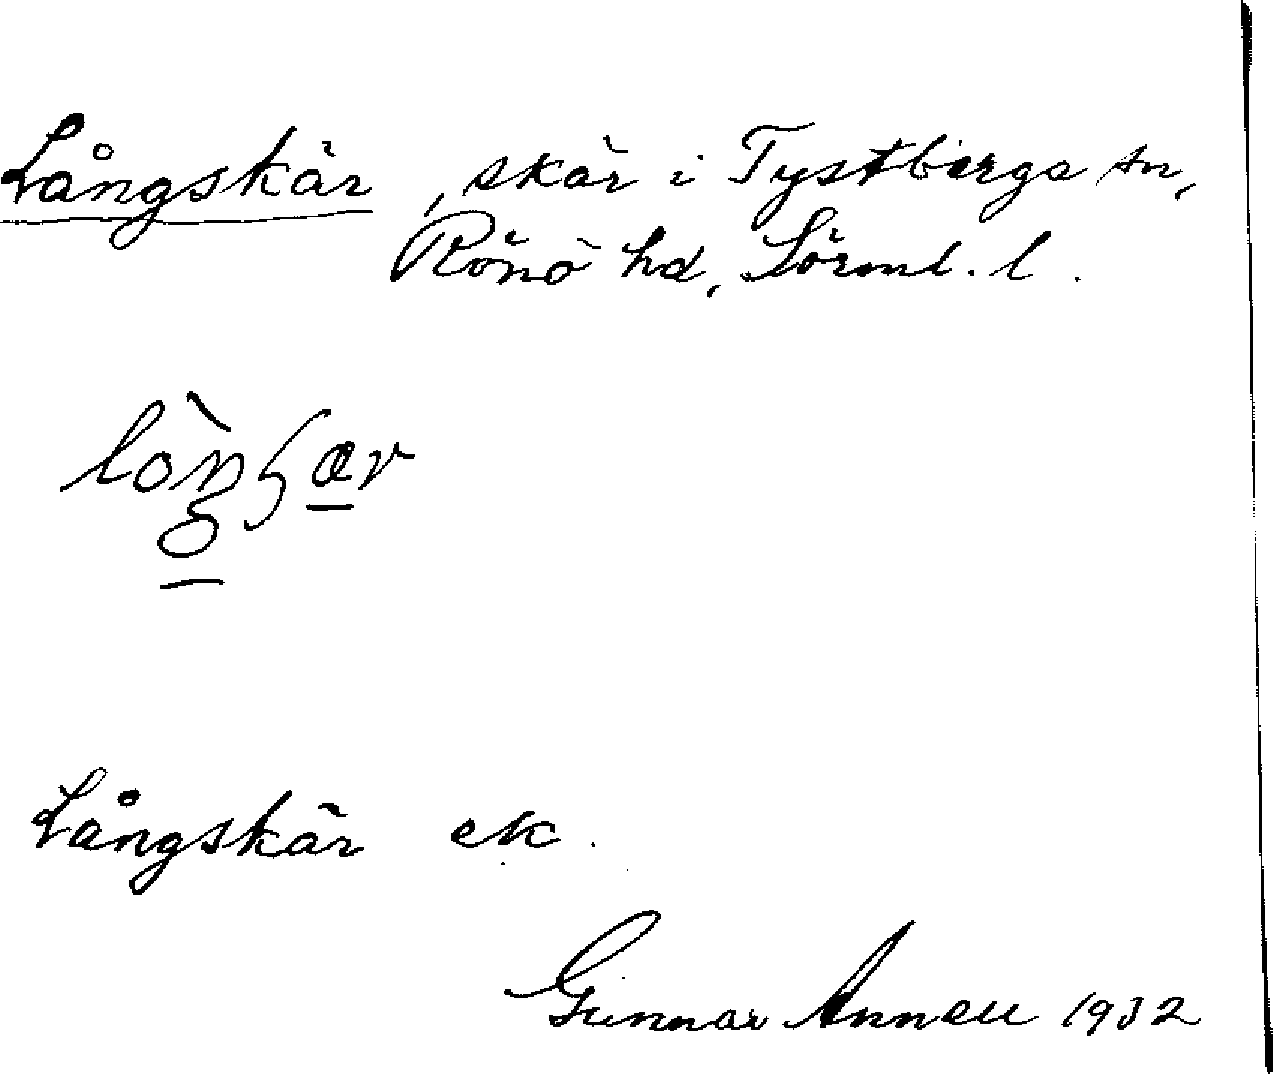 Långskär, skär i Tystberga sn,
Rönö hd, Sörml. l.
Långskär ek.
Gunnar Annell 1932